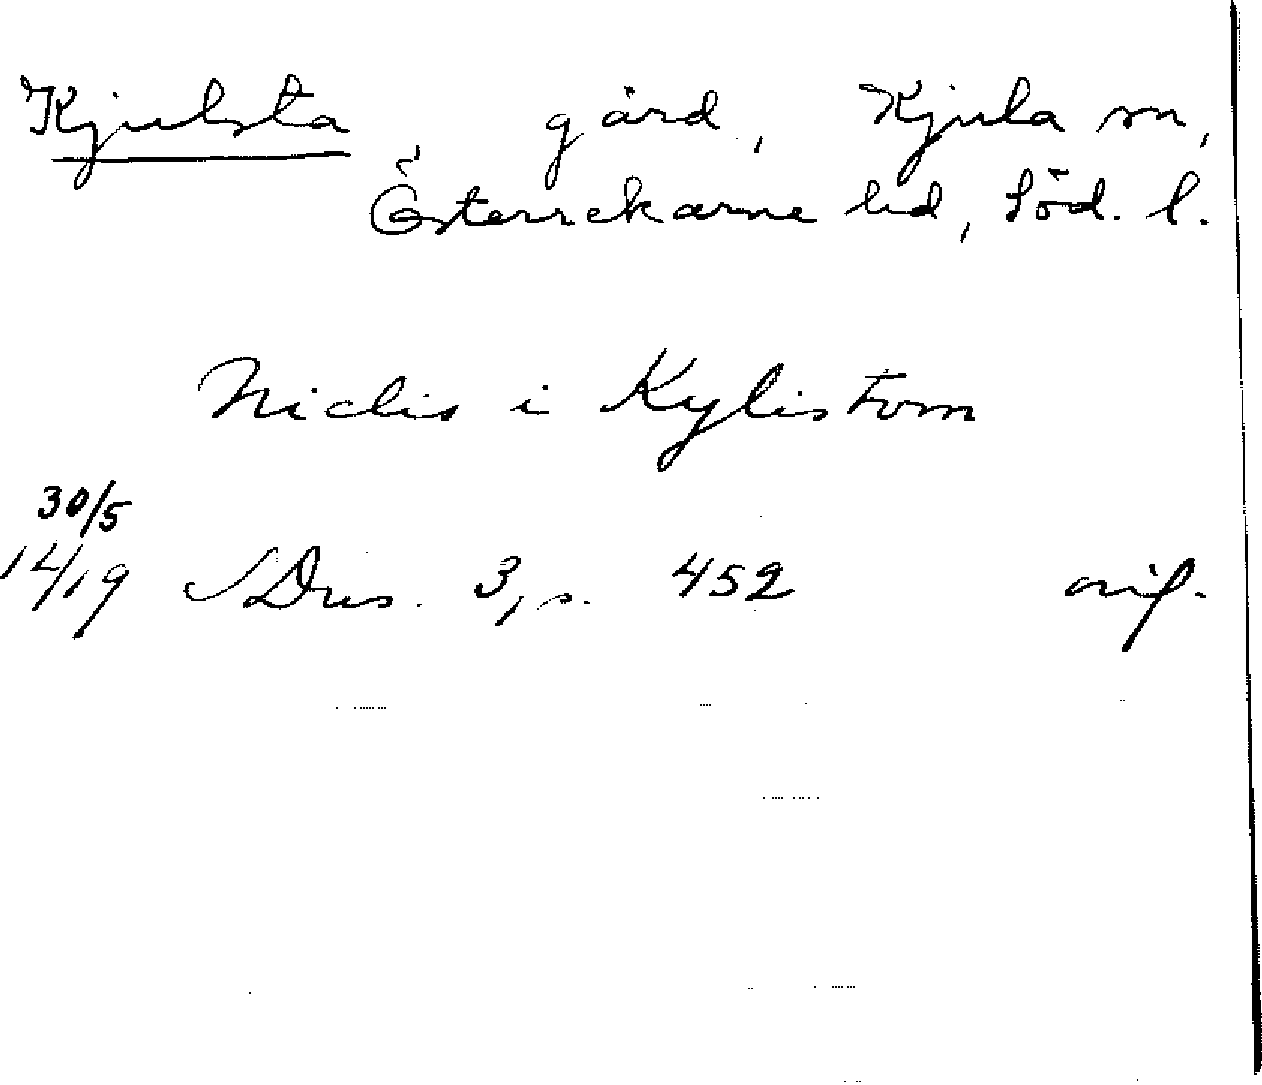 Kjulsta gård, Kjula sn,
Österrekarne hd, Söd. l.
Niclis i Kylistom
30/5
14/19 SDns. 3, s. 452 orig.